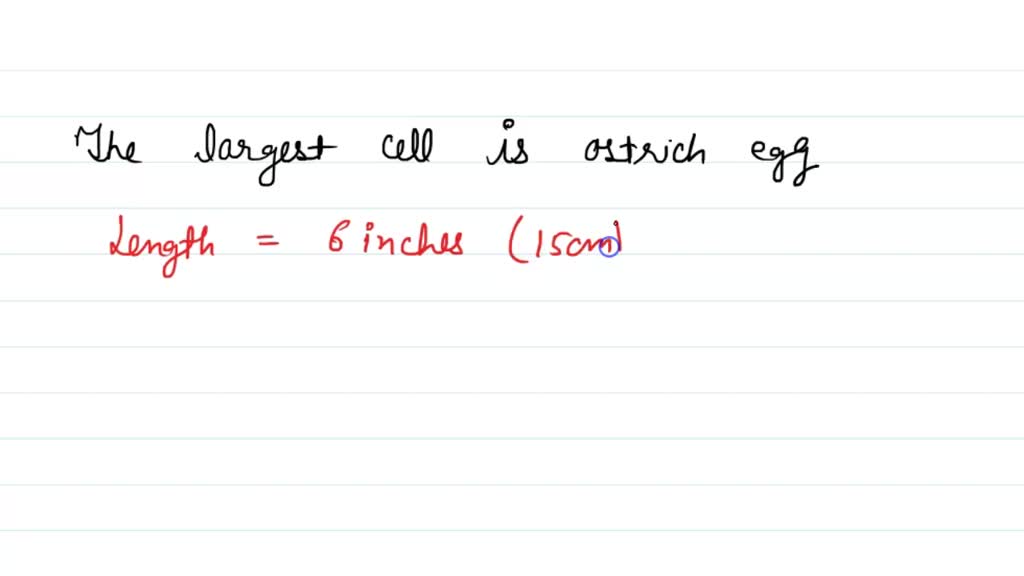 The largest cell is ostrich egg
Length = 6 inches (15cm)